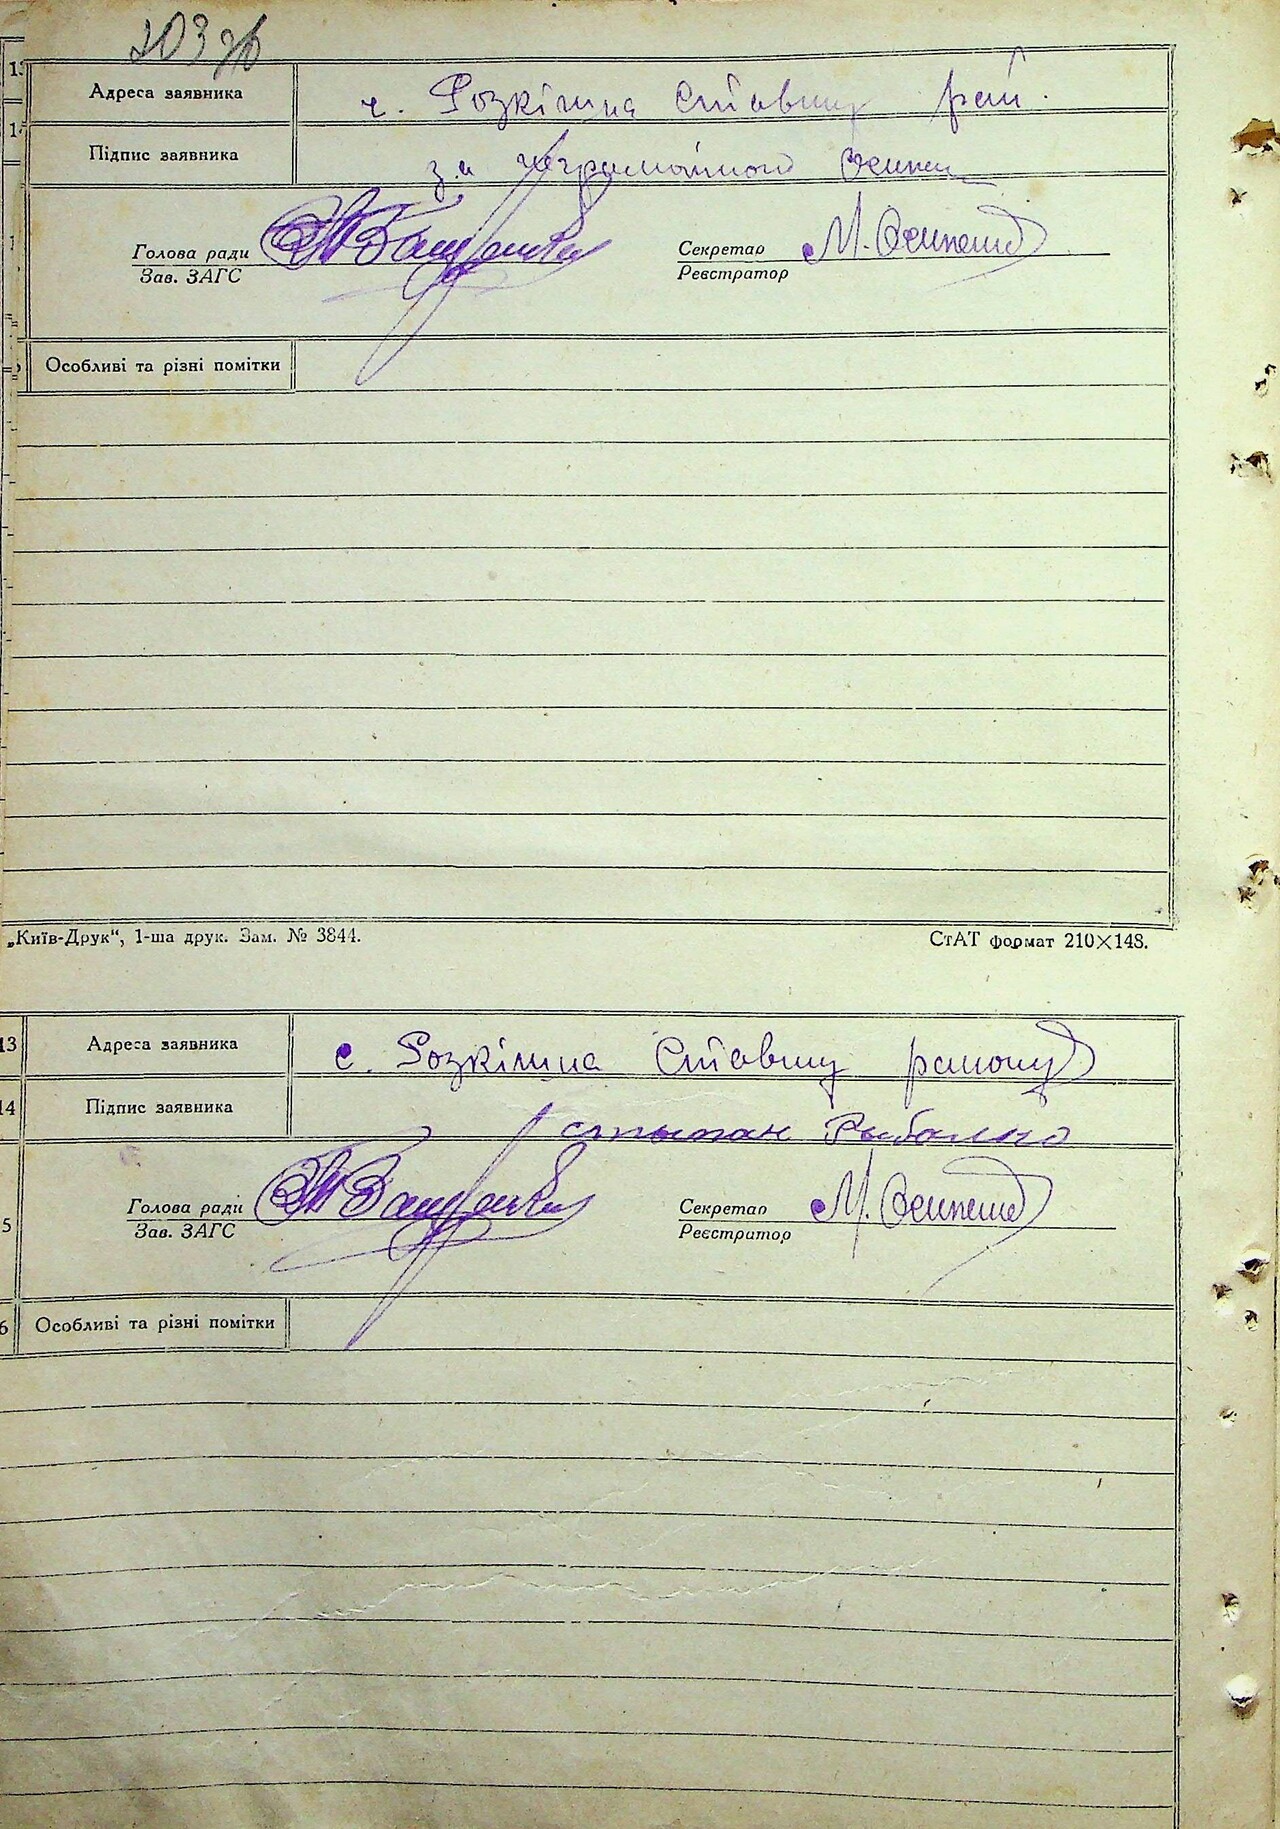 203 зв
13
Адреса заявника
с. Розкішна Ставищ рай.
14
Підпис заявника
за неграмотного Осипен
Голова ради
Зав. ЗАГС
Секретар М. Осипенко
Реєстратор
Особливі та різні помітки
„Київ-Друк“, 1-ша друк. Зам. № 3844.
СтАТ формат 210×148.
13
Адреса заявника
с. Розкішна Ставищ району
14
Підпис заявника
Рыбалко
5
Голова ради
Зав. ЗАГС
Секретар М. Осипенко
Реєстратор
6
Особливі та різні помітки